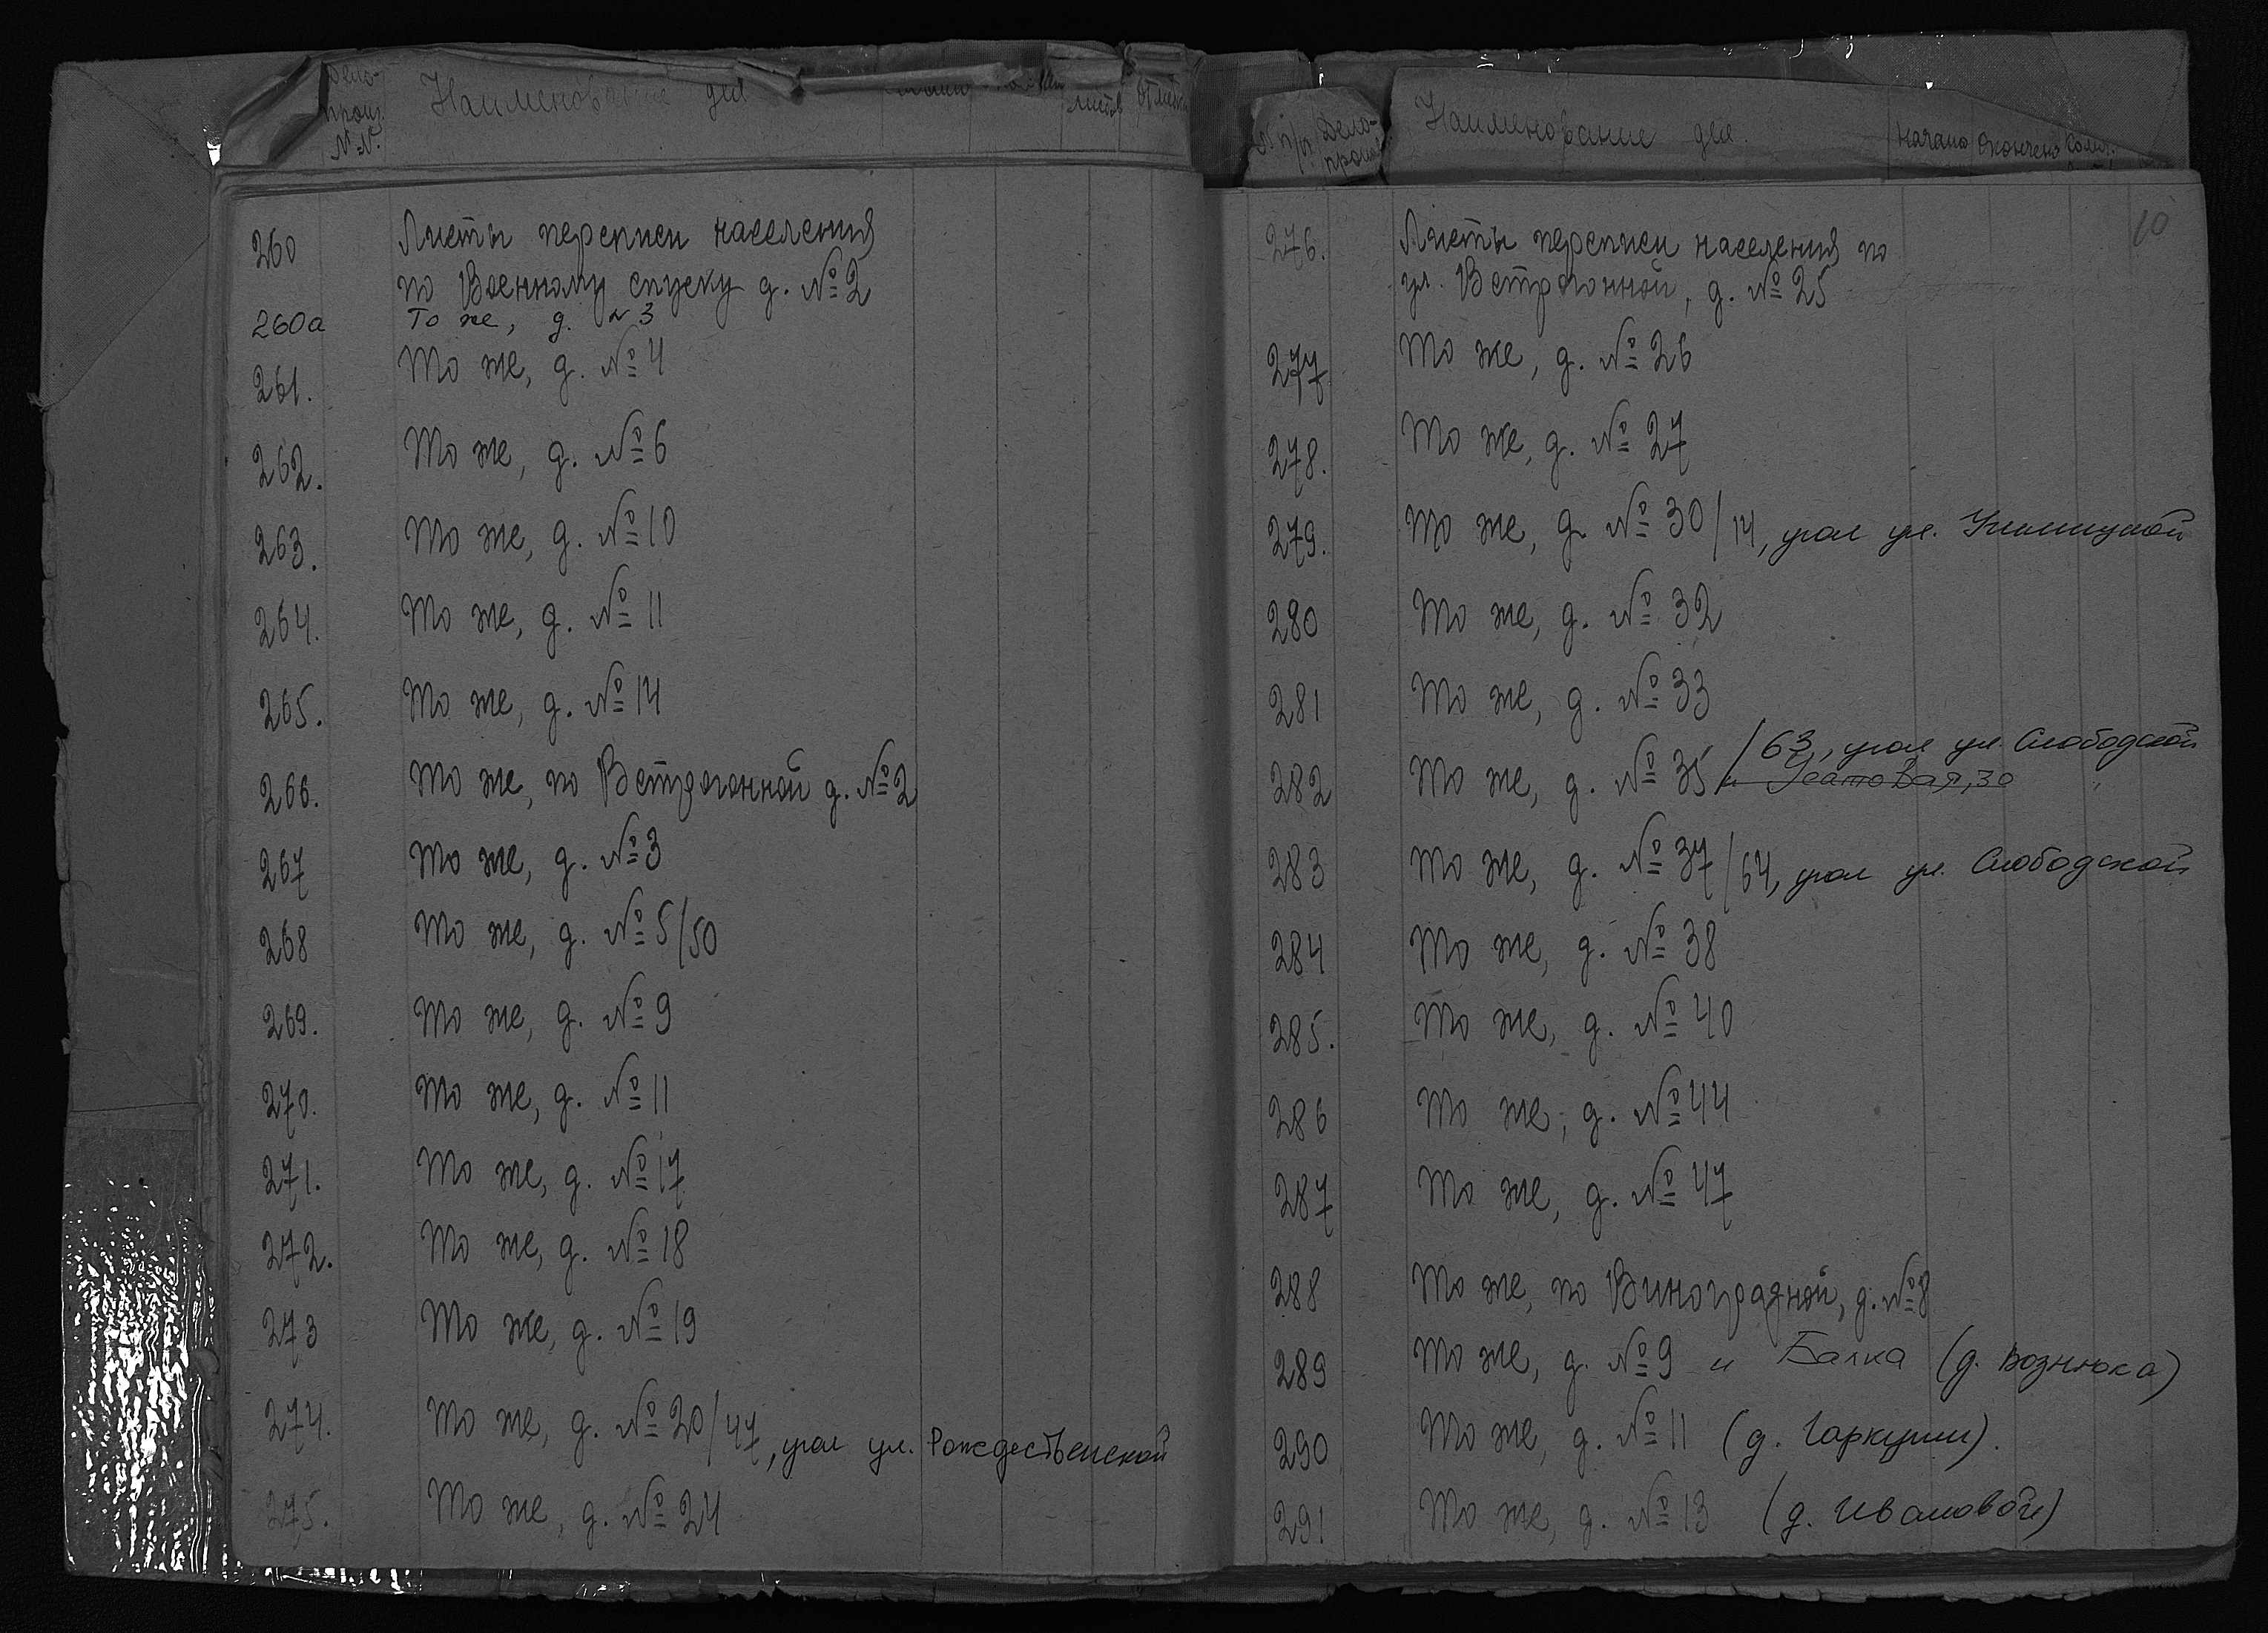 Дело-
произ.
№№
Наименование дел
листов
260 Листы переписи населения
по Военному спуску д. №2
260а То же, д. №3
261. То же, д. №4
262. То же, д. №6
263. То же, д. №10
264. То же, д. №11
265. То же, д. №14
266. То же, по Ветрогонной д. №2
267 То же, д. №3
268 То же, д. №5/50
269. То же, д. №9
270. То же, д. №11
271. То же, д. №17
272. То же, д. №18
273 То же, д. №19
274. То же, д. №20/47, угол ул. Рождественской
275. То же, д. №24
№ п/п
Дело-
произ.
Наименование дел.
Начато
Окончено
10
276. Листы переписи населения по
ул. Ветрогонной, д. №25
277. То же, д. №26
278. То же, д. №27
279. То же, д. №30/14, угол ул.
280 То же, д. №32
281 То же, д. №33
282 То же, д. №35/63, угол ул. Слободской
и Усатовая, 30
283 То же, д. №37/64, угол ул. Слободской
284 То же, д. №38
285. То же, д. №40
286 То же, д. №44
287 То же, д. №47
288 То же, по Виноградной, д. №8
289 То же, д. №9 и Балка (д. Вознюка)
290 То же, д. №11 (д. Гаркуши).
291 То же, д. №13 (д. Ивановой)